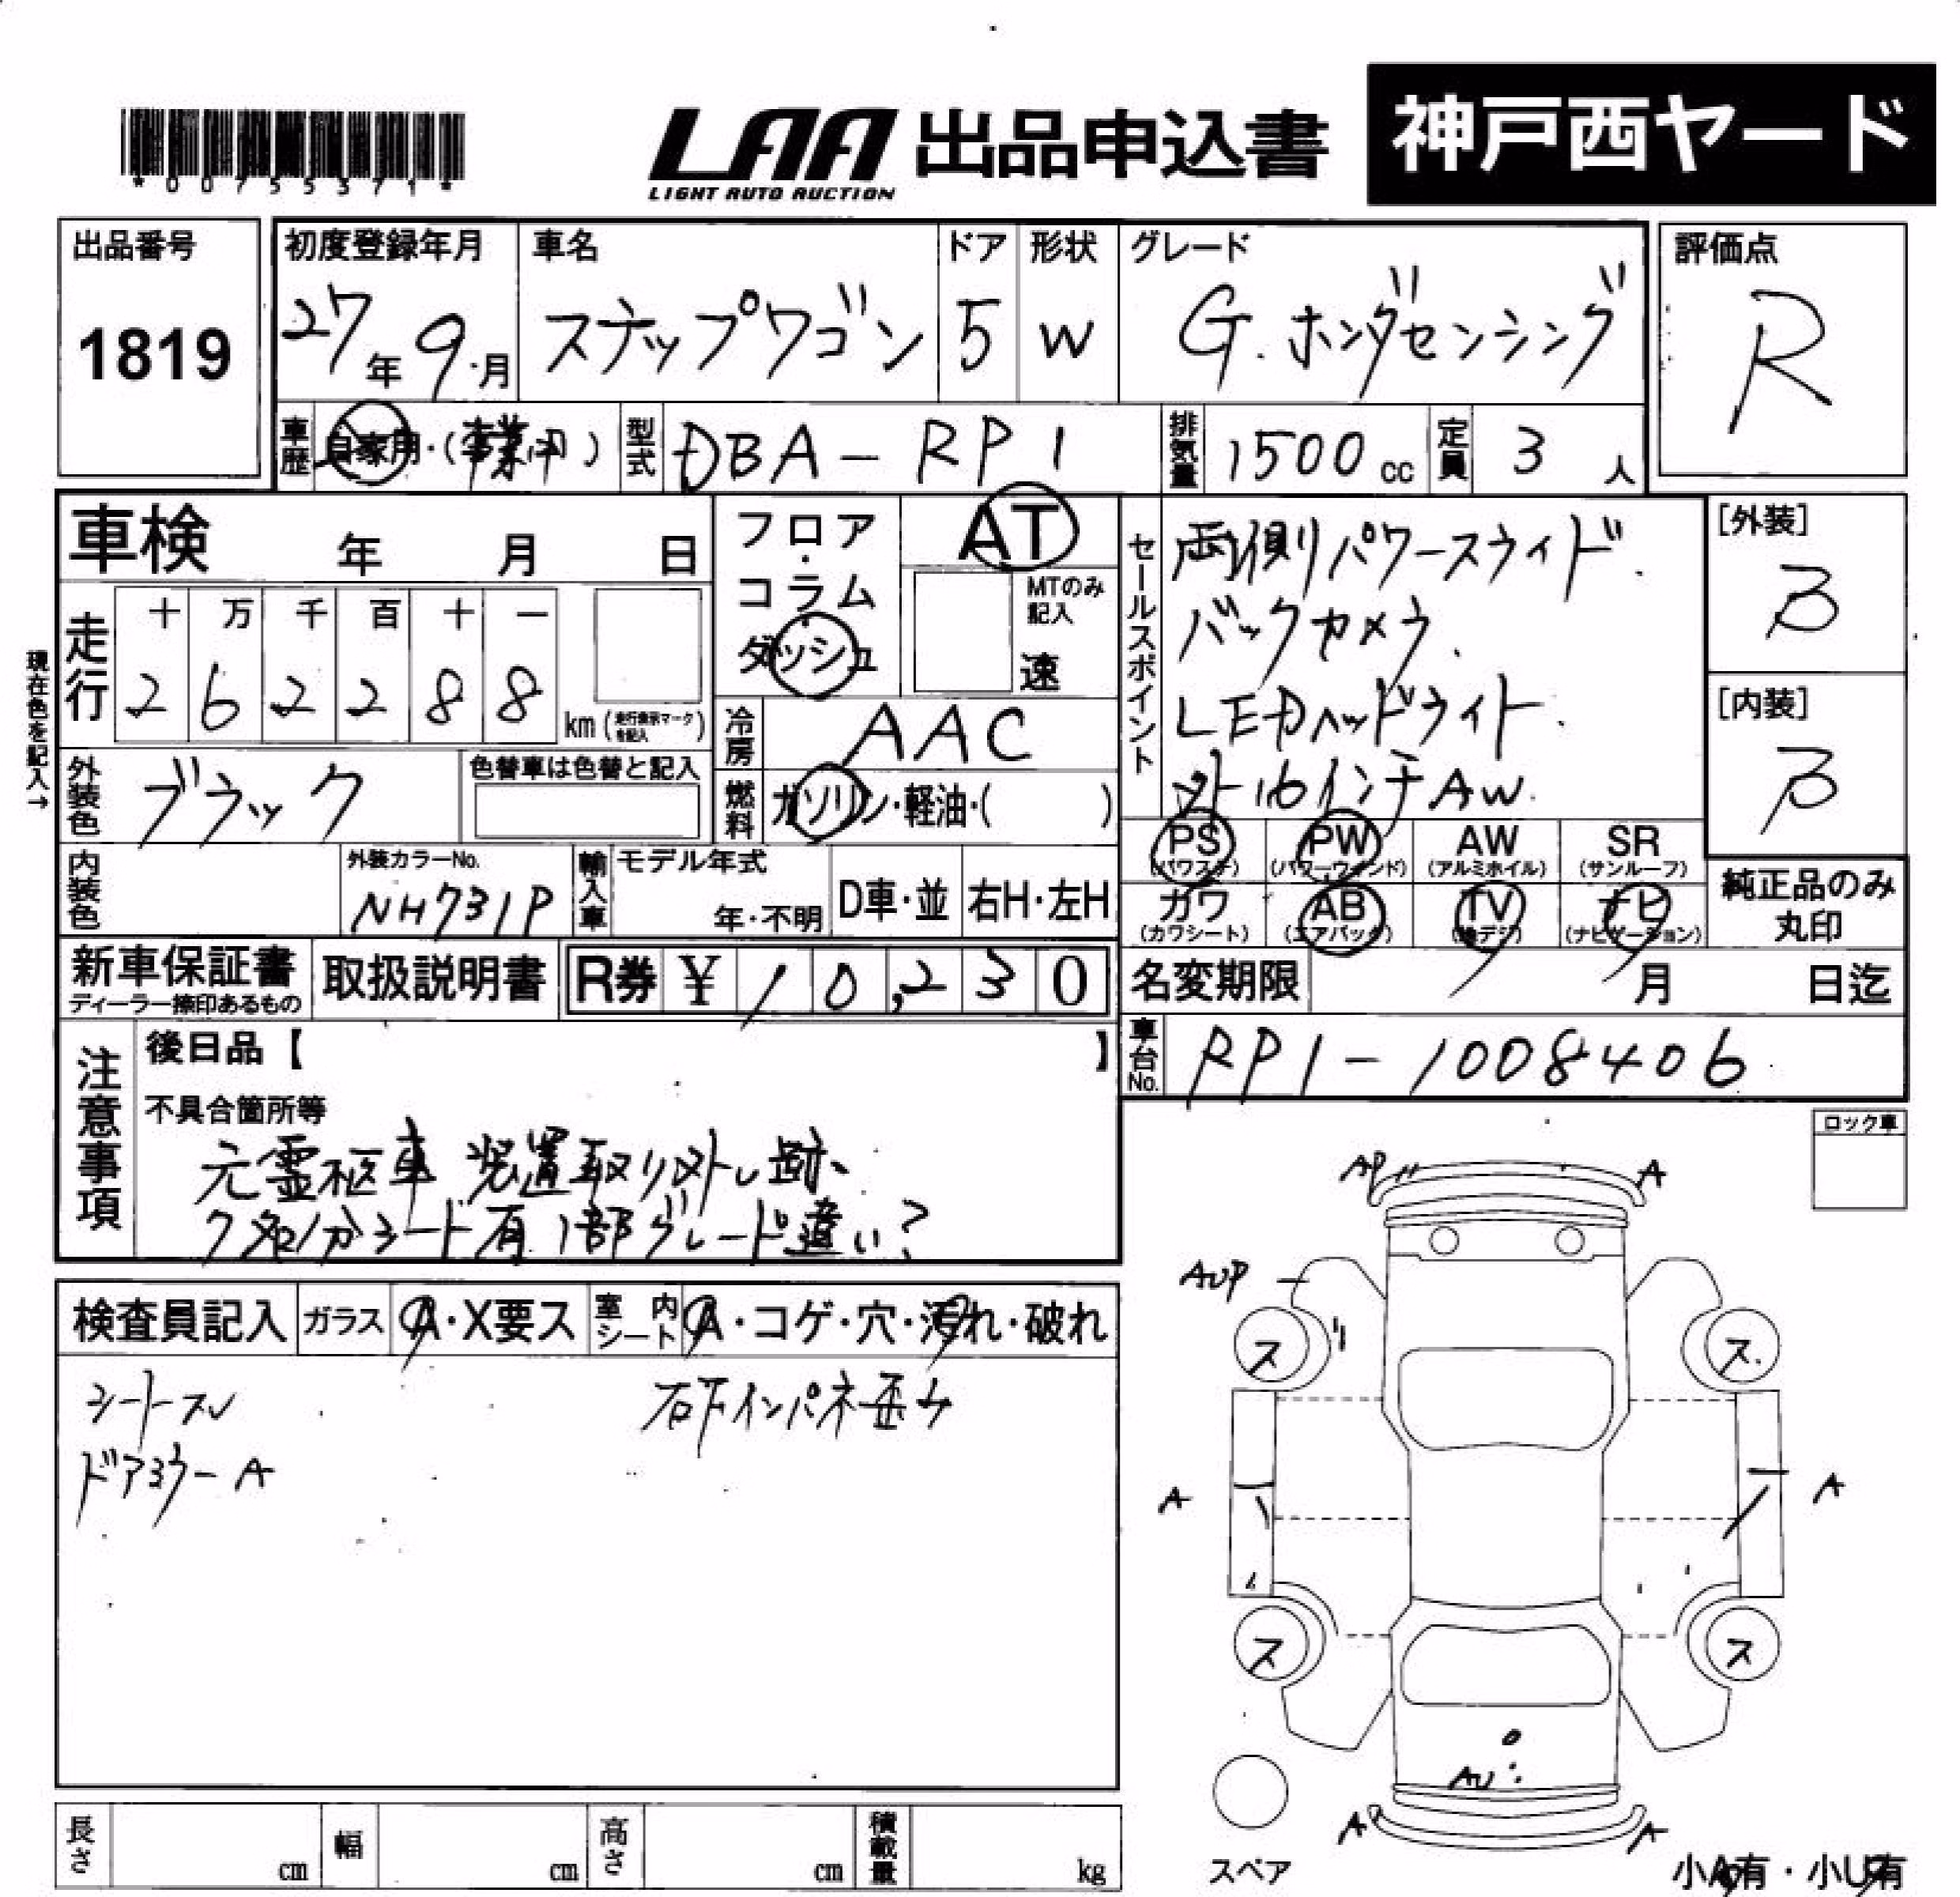 *00755371*
LAA 出品申込書 神戸西ヤード
LIGHT AUTO AUCTION
出品番号 1819
初度登録年月 27年9月
車名 ステップワゴン
ドア 5
形状 W
グレード G.ホンダセンシング
評価点 R
車歴 自家用・(事業用)
型式 DBA-RP1
排気量 1500cc
定員 3人
車検 年 月 日
フロア・コラム・ダッシュ
AT
MTのみ記入
速
セールスポイント
両側パワースライド.
バックカメラ.
LEDヘッドライト.
外16インチAW.
[外装] B
[内装] B
現在色を記入→
走行 十 万 千 百 十 一
2 6 2 2 8 8 km (走行表示マークを記入)
冷房 AAC
外装色 ブラック
色替車は色替と記入
燃料 ガソリン・軽油・( )
PS (パワステ) PW (パワーウィンド) AW (アルミホイル) SR (サンルーフ)
カワ (カワシート) AB (エアバック) TV (地デジ) ナビ (ナビゲーション)
純正品のみ丸印
内装色
外装カラーNo. NH731P
輸入車 モデル年式 年・不明 D車・並 右H・左H
新車保証書 ディーラー捺印あるもの
取扱説明書
R券 ¥10,230
名変期限 月 日迄
車台No. RP1-1008406
注意事項
後日品【 】
不具合箇所等
元霊柩車 装置取り外し跡、
シート有 1部グレード違い?
ロック車
検査員記入 ガラス A・X要ス 室内シート A・コゲ・穴・汚れ・破れ
シートスレ 右下インパネ歪み
ドアミラーA
AP A
AUP
ス ス
A A
ス ス
AU
AP A
スペア
小A有・小U有
長さ cm 幅 cm 高さ cm 積載量 kg